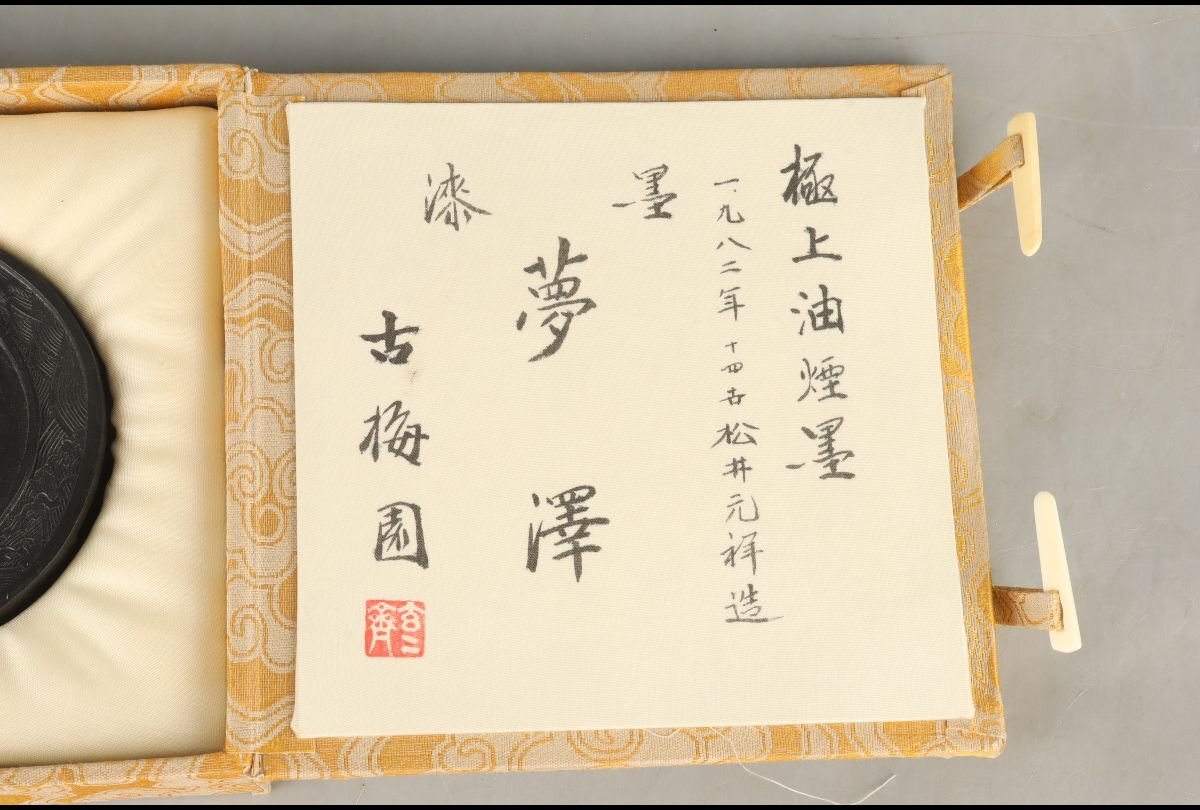 極上油煙墨
一九八二年 十四古松井元祥造
墨
夢澤
漆
古梅園